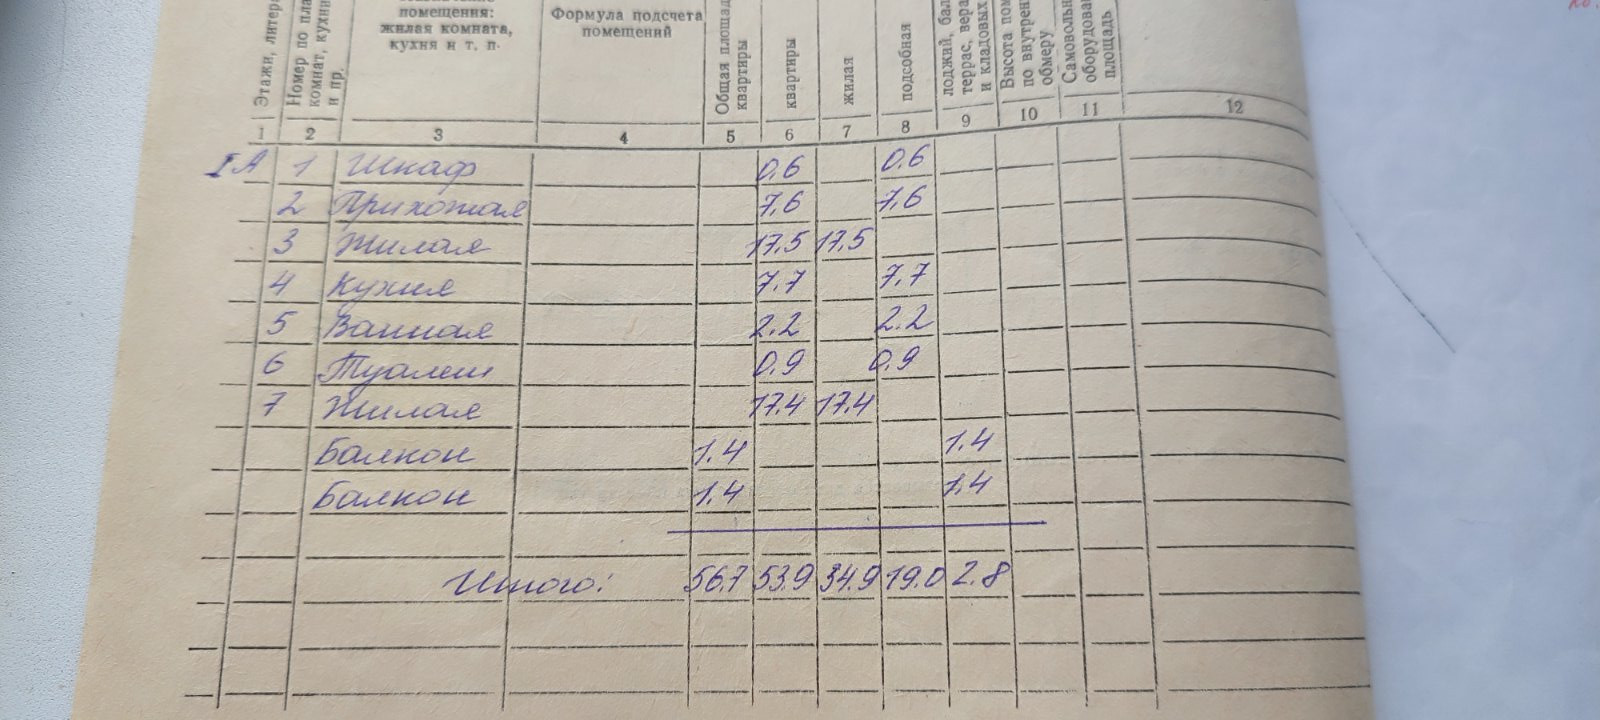 Этажи, литера
Номер по пла
комнат, кухни
и пр.
помещения:
жилая комната,
кухня и т. п.
Формула подсчета
помещений
Общая площадь
квартиры
квартиры
жилая
подсобная
лоджий, бал
террас, вера
и кладовых
Высота пом
по внутрен
обмеру
Самовольн
оборудован
площадь
1 2 3 4 5 6 7 8 9 10 11 12
I А 1 Шкаф 0.6 0.6
2 Прихожая 7,6 7,6
3 Жилая 17.5 17.5
4 Кухня 7.7 7.7
5 Ванная 2.2 2.2
6 Туалет 0.9 0.9
7 Жилая 17.4 17.4
Балкон 1.4 1.4
Балкон 1.4 1.4
Итого: 56.7 53.9 34.9 19.0 2.8